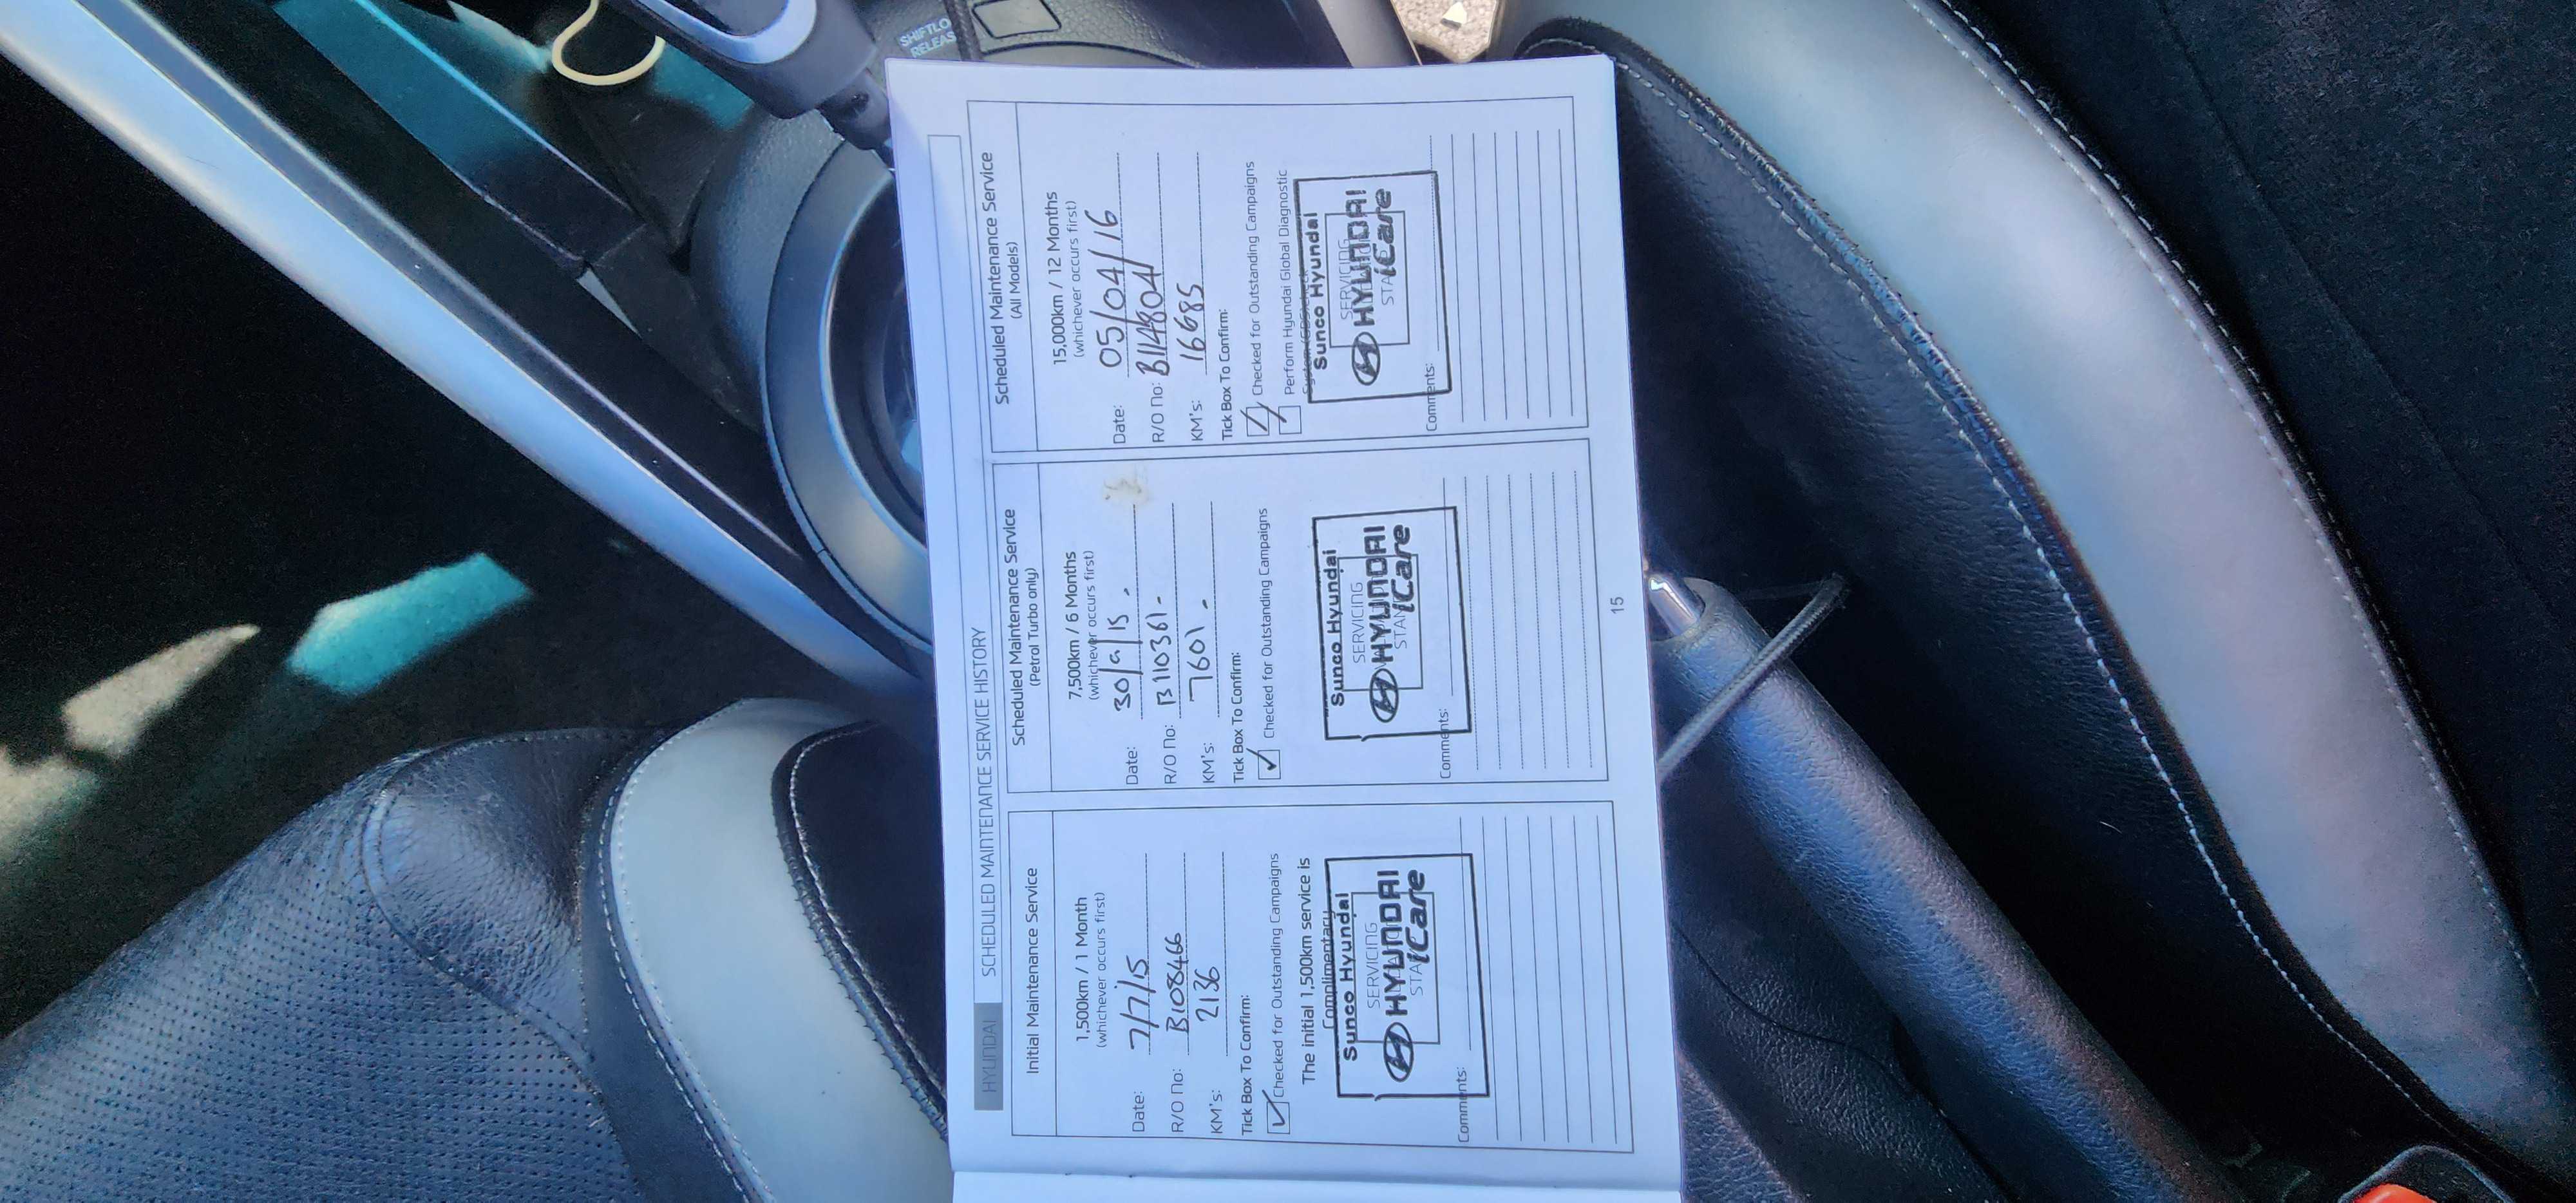 SHIFTLO
RELEAS
HYUNDAI
SCHEDULED MAINTENANCE SERVICE HISTORY
Initial Maintenance Service
1,500km / 1 Month
(whichever occurs first)
Date: 7/7/15
R/O No: B108466
KM's: 2136
Tick Box To Confirm:
Checked for Outstanding Campaigns
The initial 1,500km service is
Complimentary
Sunco Hyundai
SERVICING
HYUNDAI
STA
iCare
Comments:
Scheduled Maintenance Service
(Petrol Turbo only)
7,500km / 6 Months
(whichever occurs first)
Date: 30/9/15.
R/O No: B110361-
KM's: 7601.
Tick Box To Confirm:
Checked for Outstanding Campaigns
Sunco Hyundai
SERVICING
HYUNDAI
STAN
iCare
Comments:
Scheduled Maintenance Service
(All Models)
15,000km / 12 Months
(whichever occurs first)
Date: 05/04/16
R/O No: B114804
KM's: 16685
Tick Box To Confirm:
Checked for Outstanding Campaigns
Perform Hyundai Global Diagnostic
System
Sunco Hyundai
SERVICING
HYUNDAI
STA
iCare
Comments:
15